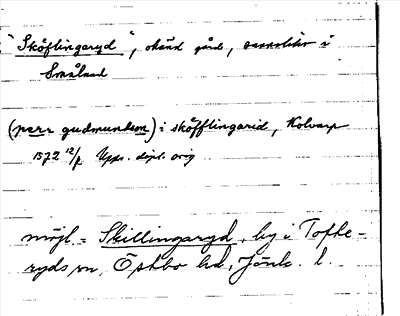 "Sköflingaryd", okänd gård, sannolikt i
Småland
(pær gudmundson) i sköfflingarid, Kolvarp
1572 12/7 Upps. dipl. orig
möjl. = Skillingaryd, by i Tofte-
ryds sn, Östbo hd, Jönk. l.